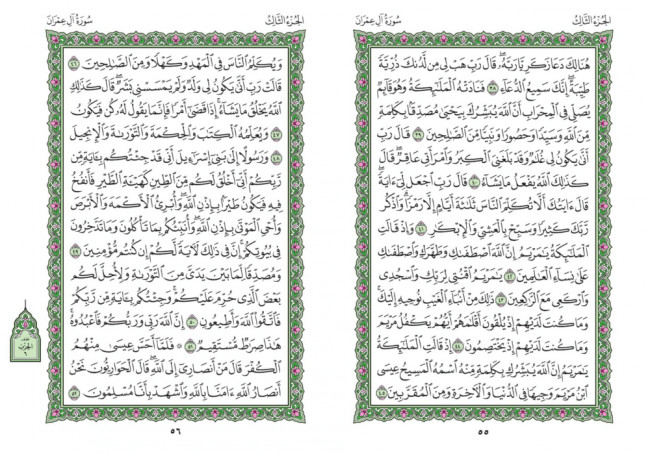 الجزء الثالث
سورة آل عمران
هنالك دعا زكريا ربه قال رب هب لي من لدنك ذرية
طيبة إنك سميع الدعاء ٣٨ فنادته الملئكة وهو قائم
يصلي في المحراب أن الله يبشرك بيحيى مصدقا بكلمة
من الله وسيدا وحصورا ونبيا من الصلحين ٣٩ قال رب
أنى يكون لي غلم وقد بلغني الكبر وامرأتي عاقر قال
كذلك الله يفعل ما يشاء ٤٠ قال رب اجعل لي ءاية
قال ءايتك ألا تكلم الناس ثلثة أيام إلا رمزا واذكر
ربك كثيرا وسبح بالعشي والإبكر ٤١ وإذ قالت
الملئكة يمريم إن الله اصطفىك وطهرك واصطفىك
على نساء العلمين ٤٢ يمريم اقنتي لربك واسجدي
واركعي مع الركعين ٤٣ ذلك من أنباء الغيب نوحيه إليك
وما كنت لديهم إذ يلقون أقلمهم أيهم يكفل مريم
وما كنت لديهم إذ يختصمون ٤٤ إذ قالت الملئكة
يمريم إن الله يبشرك بكلمة منه اسمه المسيح عيسى
ابن مريم وجيها في الدنيا والأخرة ومن المقربين ٤٥
٥٥
الجزء الثالث
سورة آل عمران
ويكلم الناس في المهد وكهلا ومن الصلحين ٤٦
قالت رب أنى يكون لي ولد ولم يمسسني بشر قال كذلك
الله يخلق ما يشاء إذا قضى أمرا فإنما يقول له كن فيكون
٤٧ ويعلمه الكتب والحكمة والتورىة والإنجيل
٤٨ ورسولا إلى بني إسرءيل أني قد جئتكم بءاية من
ربكم أني أخلق لكم من الطين كهيئة الطير فأنفخ
فيه فيكون طيرا بإذن الله وأبرئ الأكمه والأبرص
وأحي الموتى بإذن الله وأنبئكم بما تأكلون وما تدخرون
في بيوتكم إن في ذلك لأية لكم إن كنتم مؤمنين ٤٩
ومصدقا لما بين يدي من التورىة ولأحل لكم
بعض الذي حرم عليكم وجئتكم بءاية من ربكم
فاتقوا الله وأطيعون ٥٠ إن الله ربي وربكم فاعبدوه
هذا صرط مستقيم ٥١ فلما أحس عيسى منهم
الكفر قال من أنصاري إلى الله قال الحواريون نحن
أنصار الله ءامنا بالله واشهد بأنا مسلمون ٥٢
الحزب
٦
٥٦